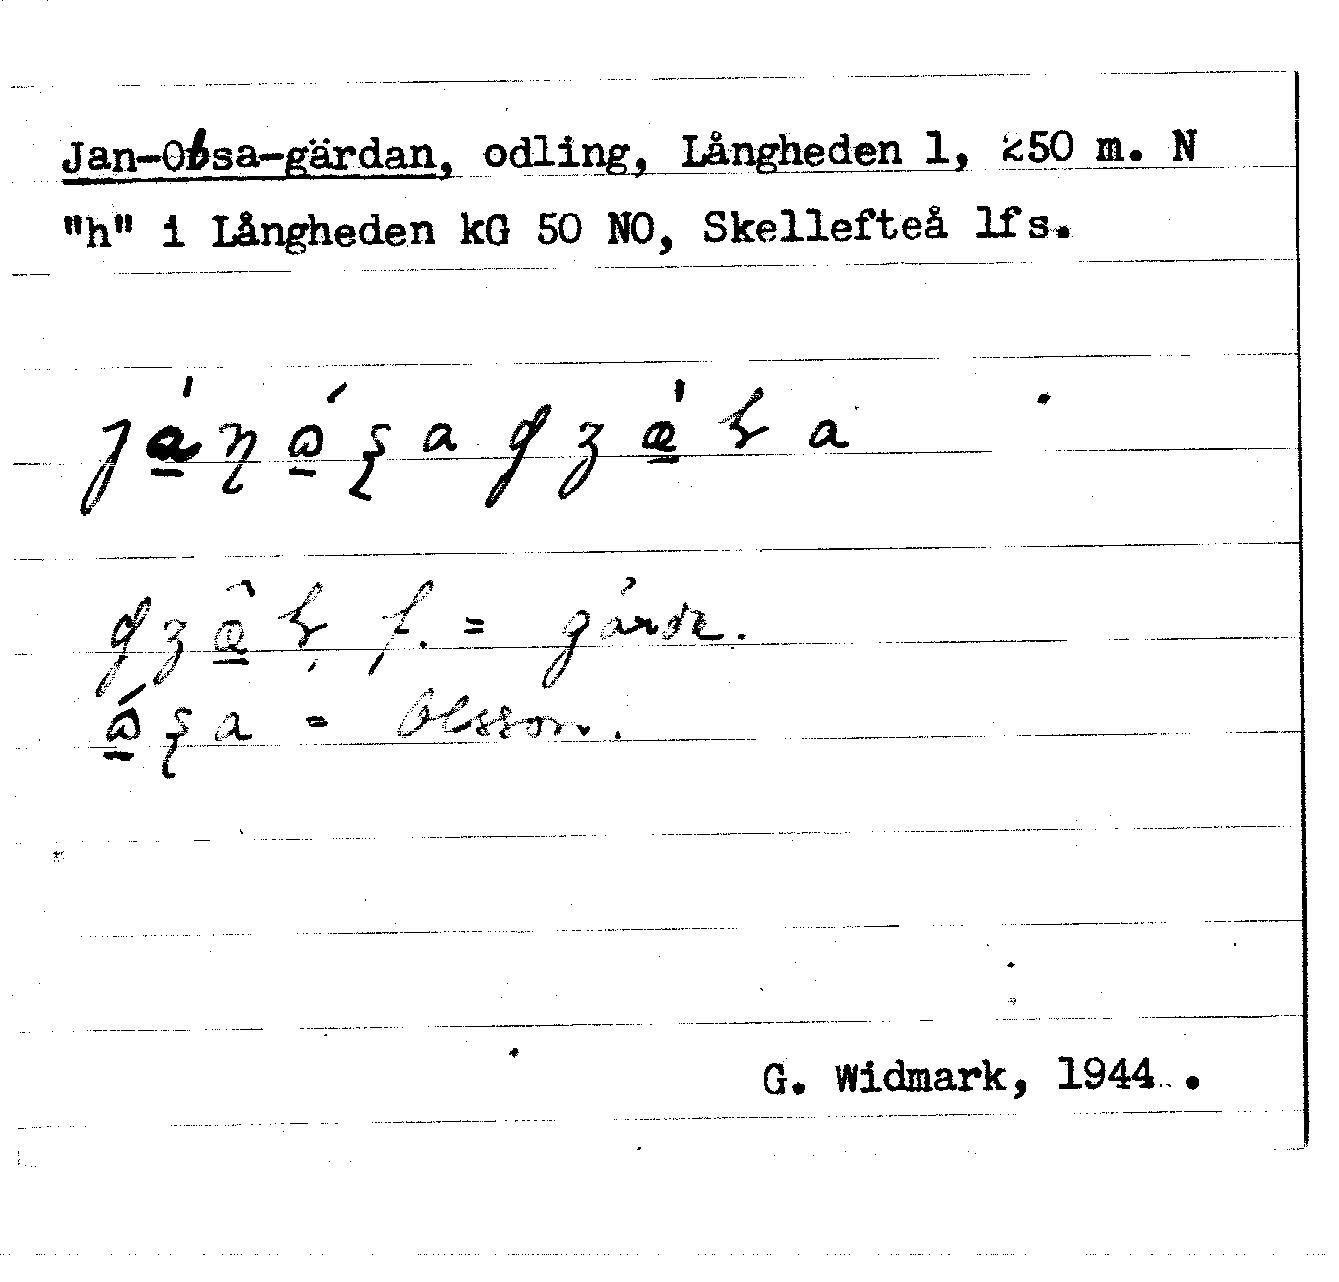 Jan-Olsa-gärdan, odling, Långheden 1, 250 m. N
"h" i Långheden kG 50 NO, Skellefteå lfs.
f. = gärde.
= Olsson.
G. Widmark, 1944.